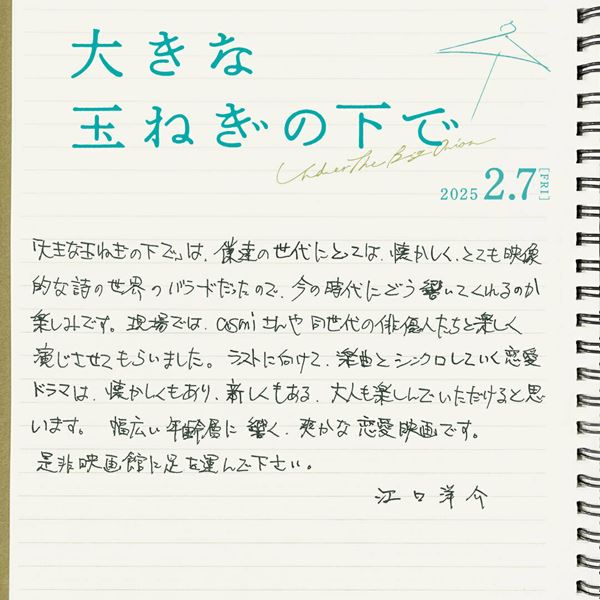 大きな
玉ねぎの下で
Under The Big Onion
2025 2.7 [FRI]
「大きな玉ねぎの下で」は、僕達の世代にとっては、懐かしく、とても映像
的な詩の世界のバラードだったので、今の時代にどう響いてくれるのか
楽しみです。現場では、asmiさんや同世代の俳優人たちと楽しく
演じさせてもらいました。ラストに向けて、楽曲とシンクロしていく恋愛
ドラマは、懐かしくもあり、新しくもある、大人も楽しんでいただけると思
います。幅広い年齢層に響く、爽かな恋愛映画です。
是非映画館に足を運んで下さい。
江口洋介